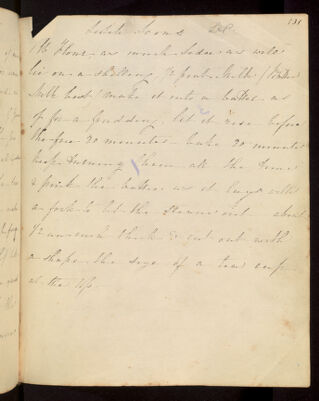 131
Scones
1 lb Flour, as much Soda as will
lie on a shilling, ½ pint Milk (Butter
Milk best) make it into a batter as
if for a pudding, let it rise before
the fire 20 minutes - bake 20 minutes
keep turning them all the time
& prick the batter as it lays with
a fork to let the steam out - about
thick & cut out with
a shape the size of a tea cup
at the top